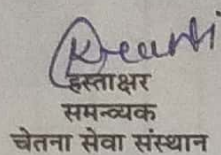 हस्ताक्षर
समन्व्यक
चेतना सेवा संस्थान